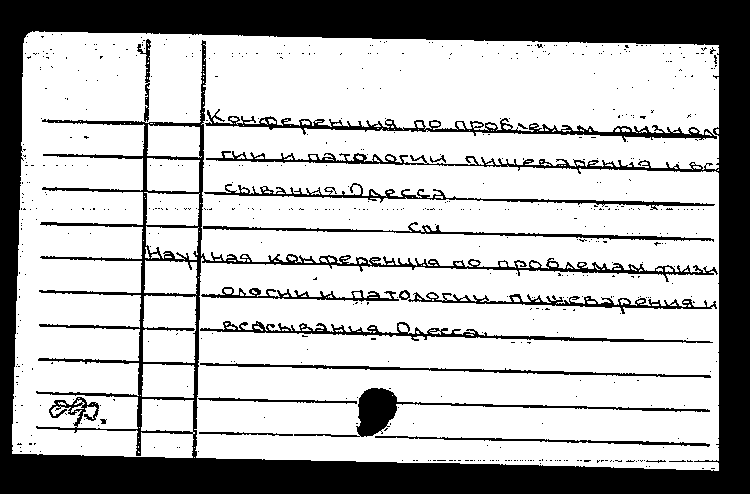 Конференция по проблемам физиоло
гии и патологии пищеварения и вса
сывания. Одесса.
см
Научная конференция по проблемам физи
ологии и патологии пищеварения и
всасывания. Одесса.